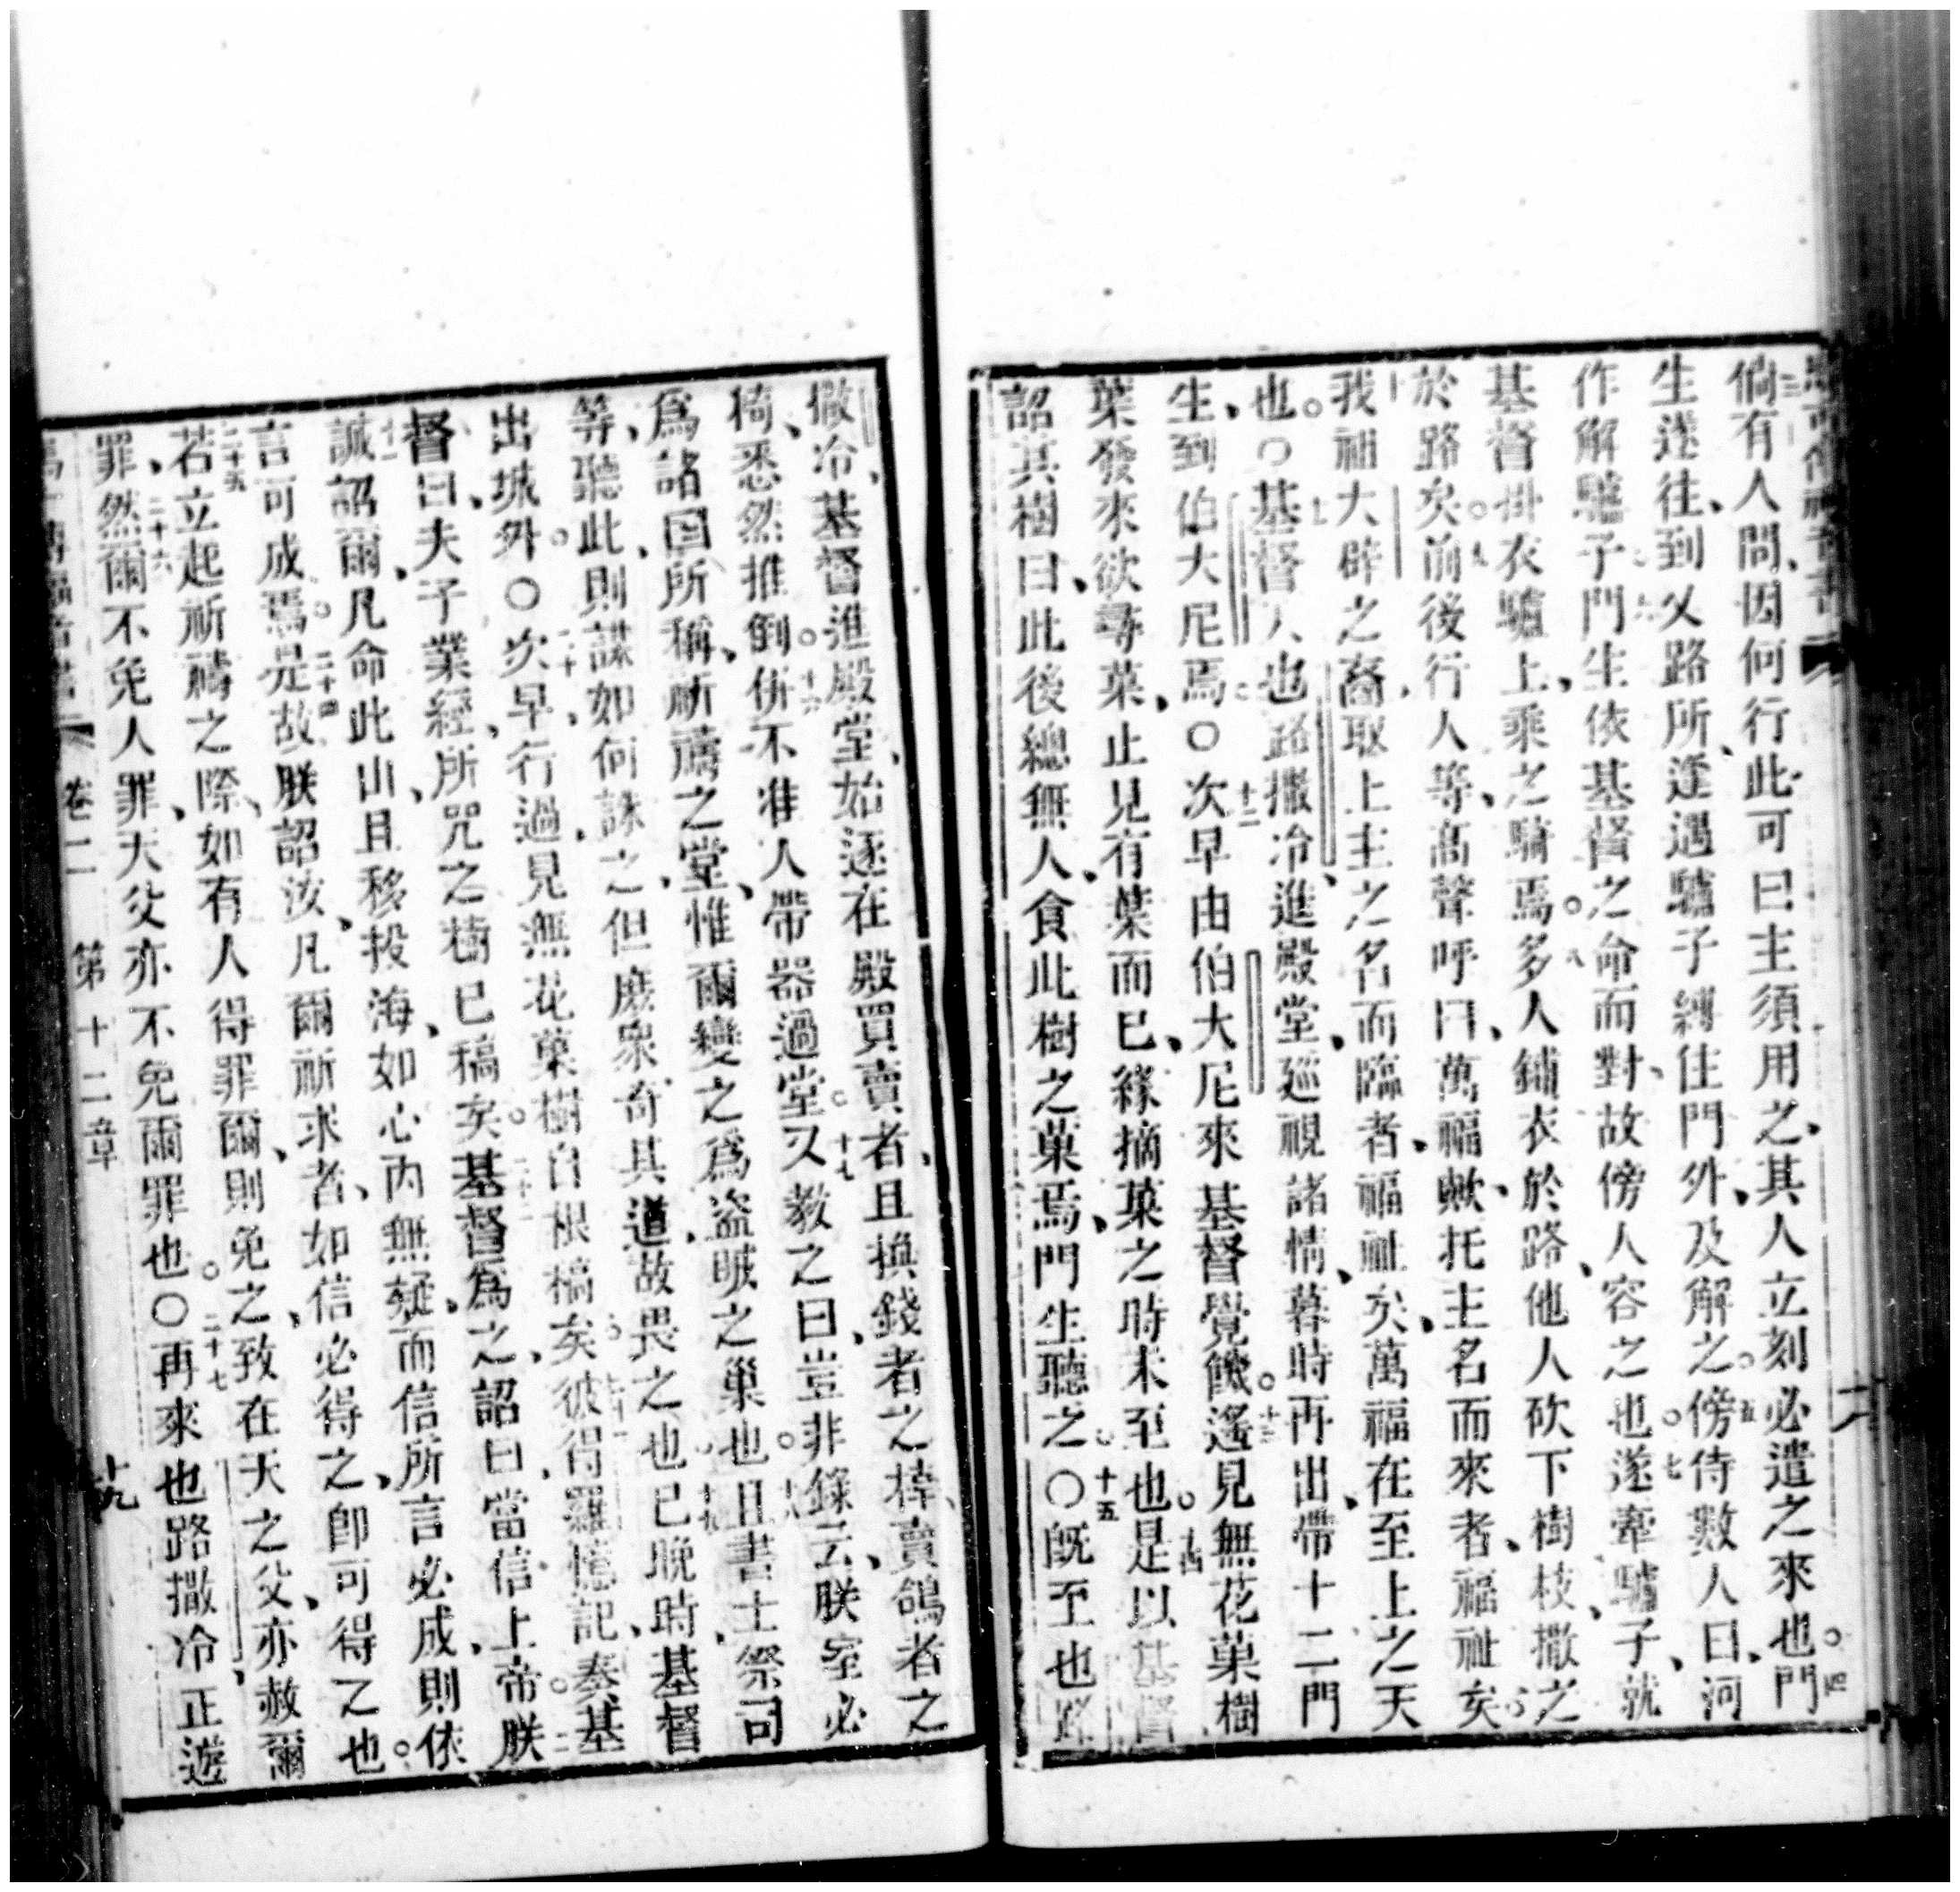 倘有人問、因何行此、可曰主須用之、其人立刻必遣之來也。四門
生遂往、到乂路所逢遇驢子縛住門外、及解之。五傍侍數人曰、河
作解驢子。六門生依基督之命而對、故傍人容之也。七遂牽驢子、就
基督掛衣驢上、乘之騎焉。八多人鋪衣於路、他人砍下樹枝、撒之
於路矣。九前後行人等、高聲呼曰、萬福歟、托主名而來者、福祉矣。
十我祖大辟之裔、取上主之名而臨者、福祉矣、萬福在至上之天
也。〇基督入也路撒冷、進殿堂、廵視諸情、暮時再出、帶十二門
生、到伯大尼焉。〇十二次早由伯大尼來、基督覺饑。十三遙見無花菓樹
葉發來、欲尋菓、止見有葉而已、緣摘菓之時未至也。十四是以基督
詔其樹曰、此後總無人食此樹之菓焉、門生聽之。〇十五既至也路
撒冷、基督進殿堂、始逐在殿買賣者、且換錢者之棹、賣鴿者之
椅、悉然推倒。十六併不准人帶器過堂。十七又教之曰、豈非錄云、朕室必
爲諸国所稱、祈禱之堂、惟爾變之爲盜賊之巢也。十八且書士祭司
等、聽此、則謀如何誅之、但庶衆奇其道、故畏之也。十九已晚時基督
出城外。〇二十次早、行過、見無花菓樹自根槁矣。二十一彼得羅憶記、奏基
督曰、夫子業經所咒之樹已稿矣。二十二基督爲之詔曰、當信上帝。朕
誠詔爾、凡命此山、且移投海、如心內無疑、而信所言必成、則依
言可成焉。二十四是故朕詔汝、凡爾祈求者、如信必得之、卽可得之也。
二十五若立起祈禱之際、如有人得罪爾、則免之、致在天之父、亦赦爾
罪。二十六然爾不免人罪、天父亦不免爾罪也。〇二十七再來也路撒冷、正遊
卷二 第十二章 十九